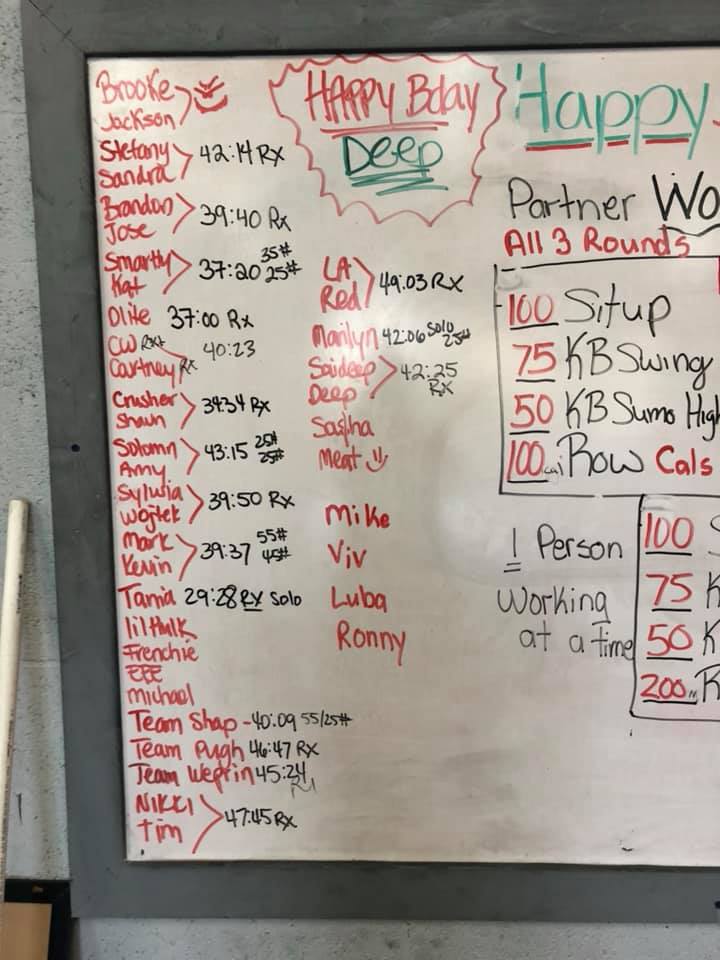 Brooke
Jackson
Stefany
Sandra
42:14 Rx
Brandon
Jose
39:40 Rx
Smartty
Kat
37:20 35# 25#
Dlite 37:00 Rx
CW Rx+
Courtney Rx
40:23
Crusher
Shaun
34:34 Rx
Solomn
Amy
43:15 25# 25#
Sylwia
Wojtek
39:50 Rx
Mark
Kevin
39:37 55# 45#
Tania 29:28 Rx Solo
lil Hulk
Frenchie
EEE
Michael
Team Shap - 40:09 55/25#
Team Pugh 46:47 RX
Team Weprin 45:24
NIKKI
Tim
47:45 Rx
HAPPY Bday
Deep
LA
Red
49:03 RX
Marilyn 42:06 Solo 25#
Saideep
Deep
42:25
RX
Sasha
Meat
Mike
Viv
Luba
Ronny
Happy
Partner Wo
All 3 Rounds
100 Situp
75 KB Swing
50 KB Sumo High
100 cal Row Cals
1 Person
Working
at a time
100 S
75 K
50 K
200m R